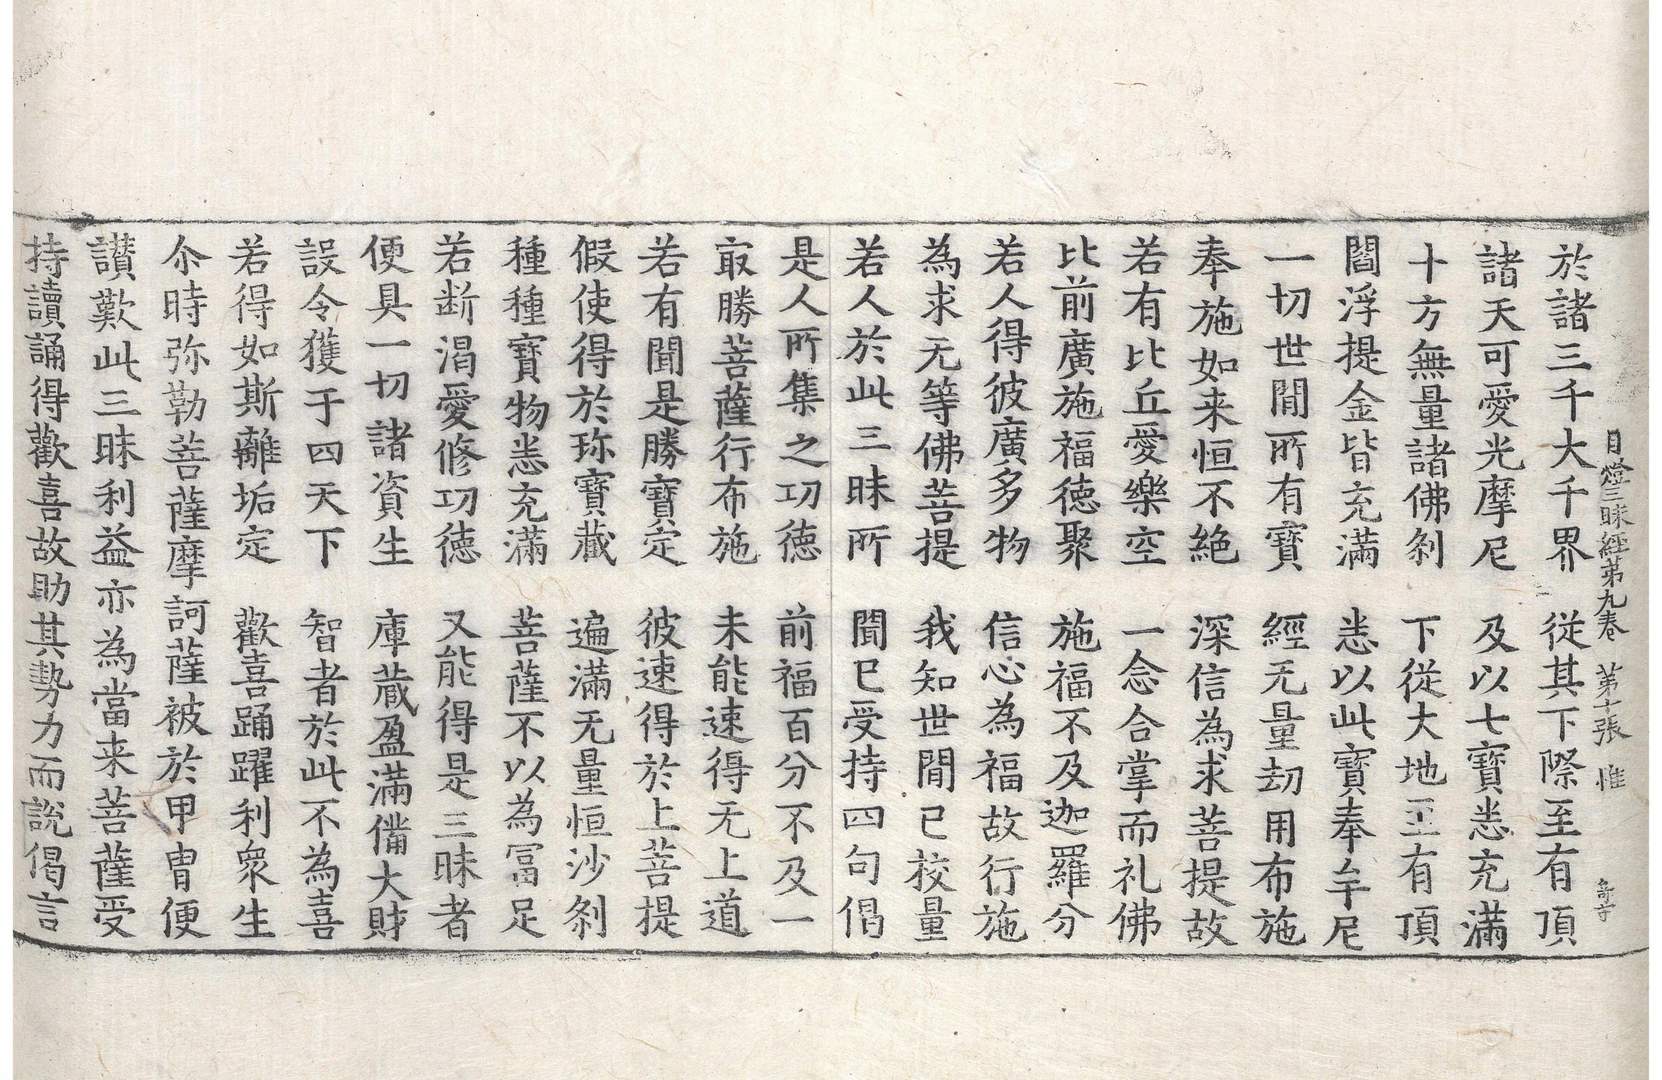 於諸三千大千界　從其下際至有頂
日燈三昧經第九卷　第十張　惟
諸天可愛光摩尼　及以七寶悉充滿
十方無量諸佛刹　下從大地至有頂
閻浮提金皆充滿　悉以此寶奉牟尼
一切世間所有寶　經无量劫用布施
奉施如来恒不絶　深信為求菩提故
若有比丘愛樂空　一念合掌而礼佛
比前廣施福德聚　施福不及迦羅分
若人得彼廣多物　信心為福故行施
為求无等佛菩提　我知世間已校量
若人於此三昧所　聞已受持四句偈
是人所集之功德　前福百分不及一
冣勝菩薩行布施　未能速得无上道
若有聞是勝寶定　彼速得於上菩提
假使得於珎寶藏　遍滿无量恒沙刹
種種寶物悉充滿　菩薩不以為冨足
若断渴愛修功德　又能得是三昧者
便具一切諸資生　庫藏盈滿俻大財
設令獲于四天下　智者於此不為喜
若得如斯離垢定　歡喜踊躍利衆生
尒時弥勒菩薩摩訶薩被於甲胄便
讃歎此三昧利益亦為當来菩薩受
持讀誦得歡喜故助其勢力而說偈言